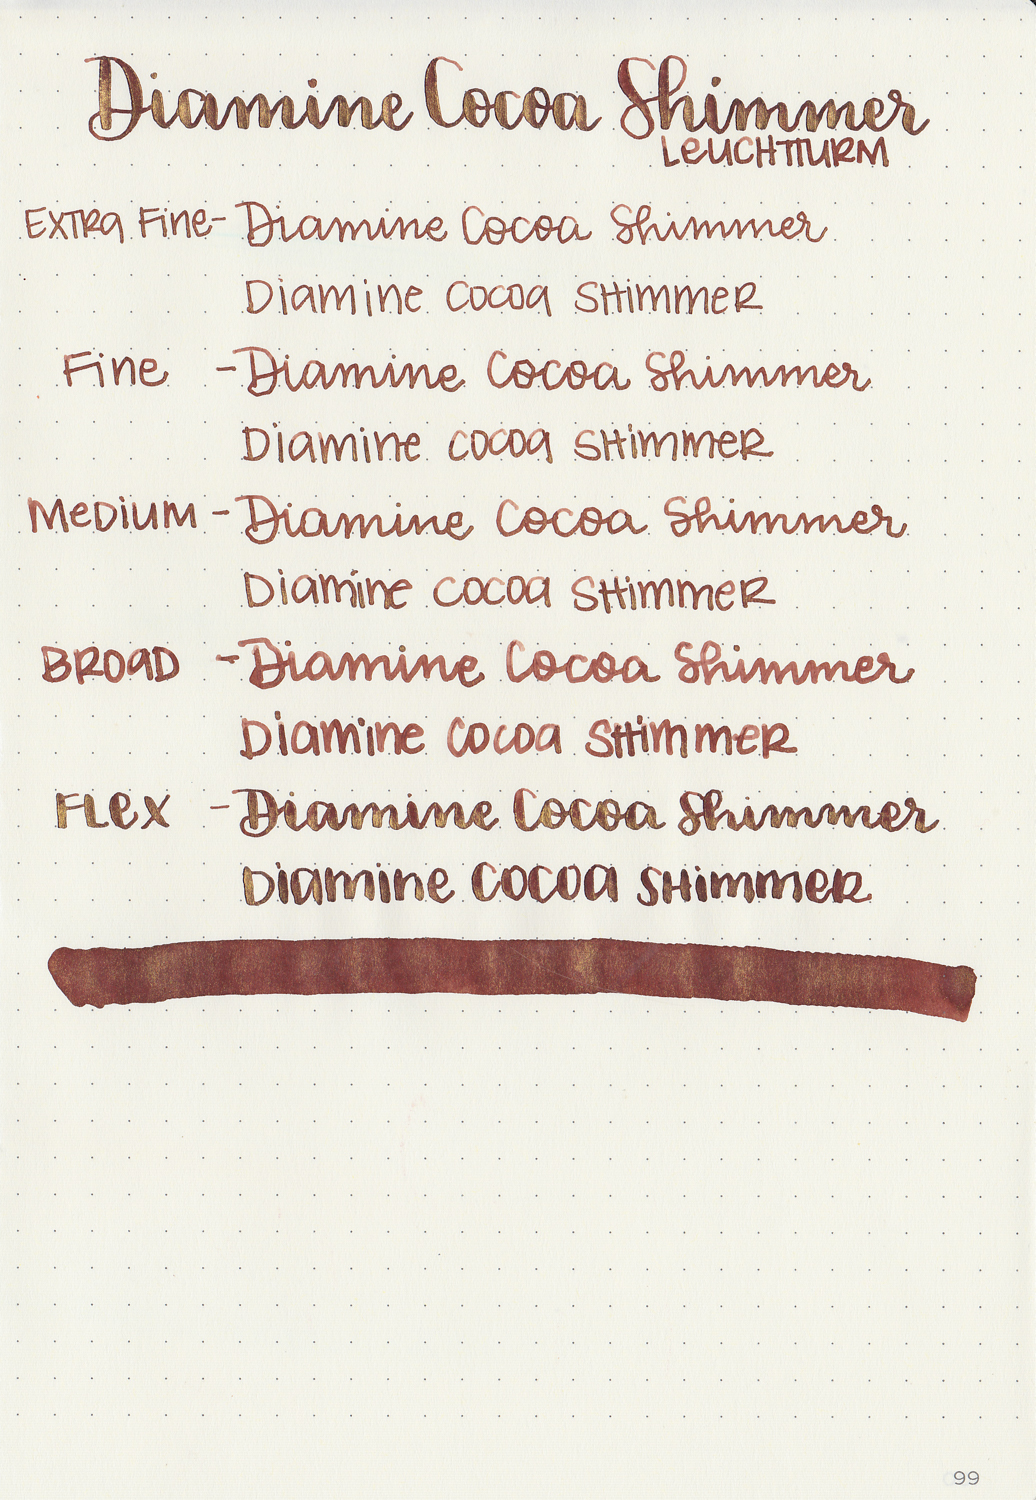 Diamine Cocoa Shimmer
LEUCHTTURM
EXTRA FINE - Diamine Cocoa Shimmer
Diamine Cocoa SHimmeR
Fine - Diamine Cocoa Shimmer
Diamine Cocoa SHimmeR
MeDIUM - Diamine Cocoa Shimmer
Diamine Cocoa SHimmeR
BROAD - Diamine Cocoa Shimmer
Diamine Cocoa SHimmeR
FLex - Diamine Cocoa Shimmer
Diamine Cocoa SHimmeR
99